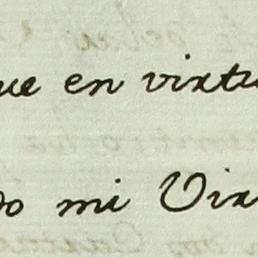 ue en virtu
do mi Vir